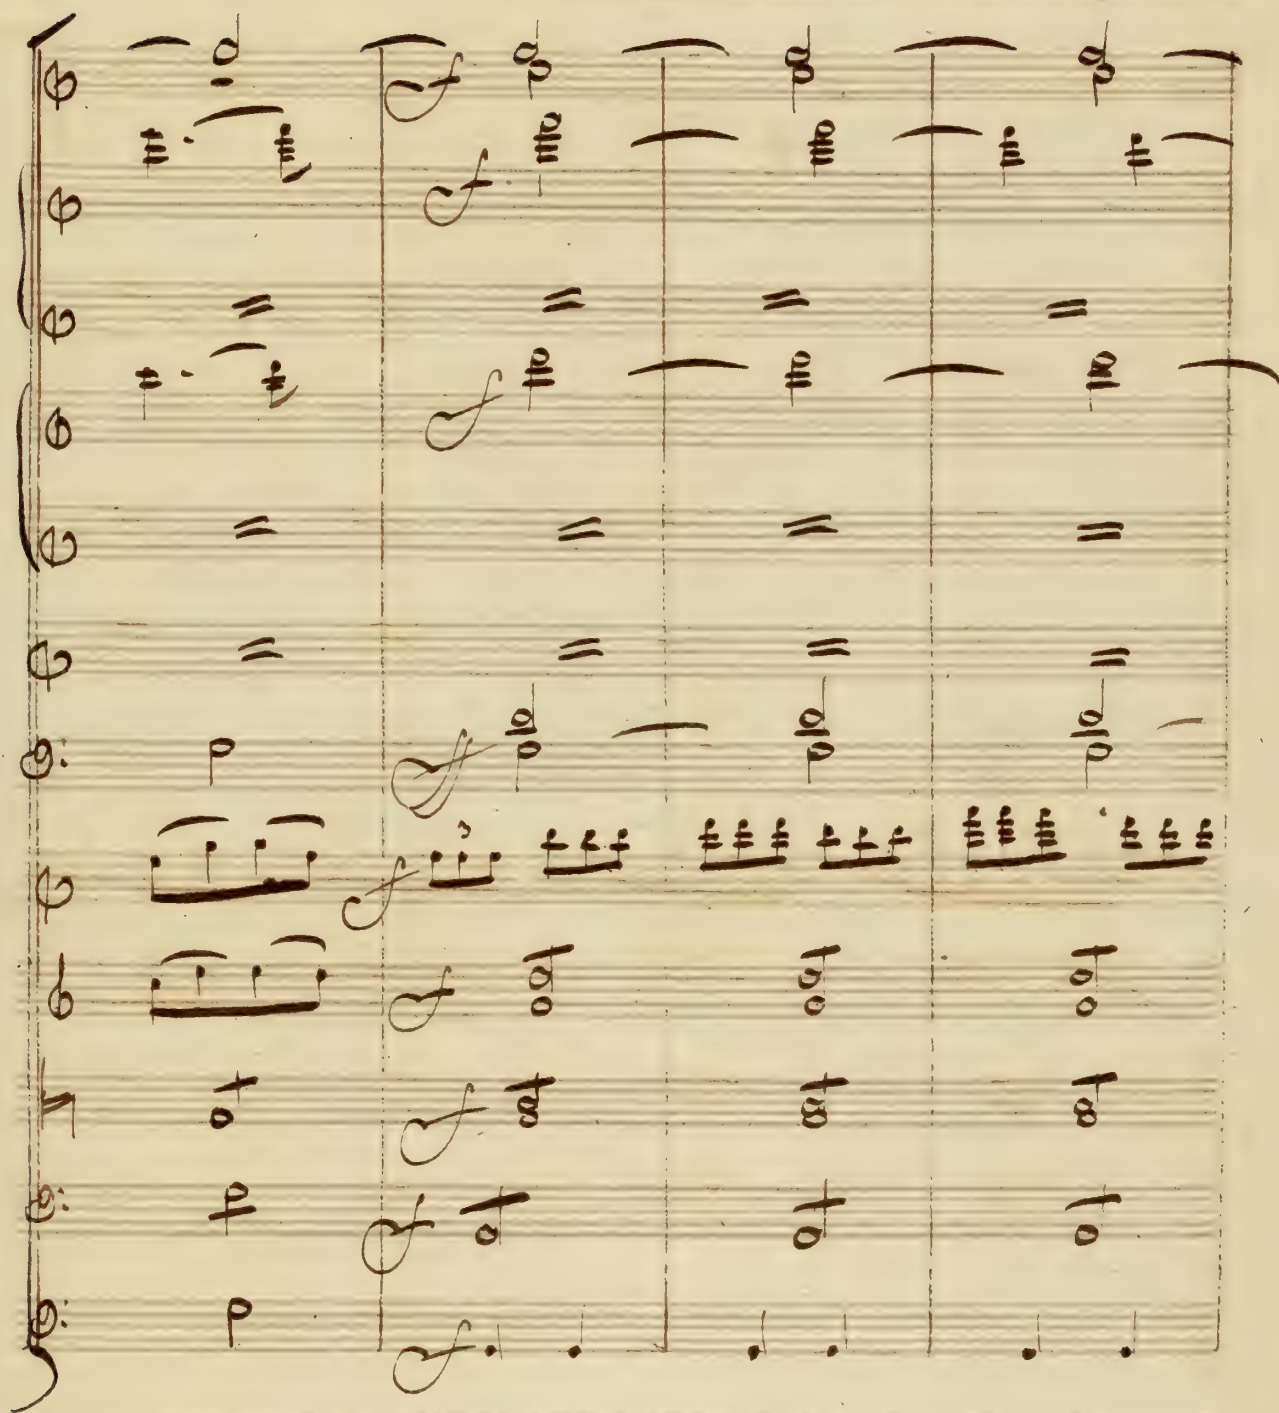 f
f
f
ff
3
f
f
f
f
f